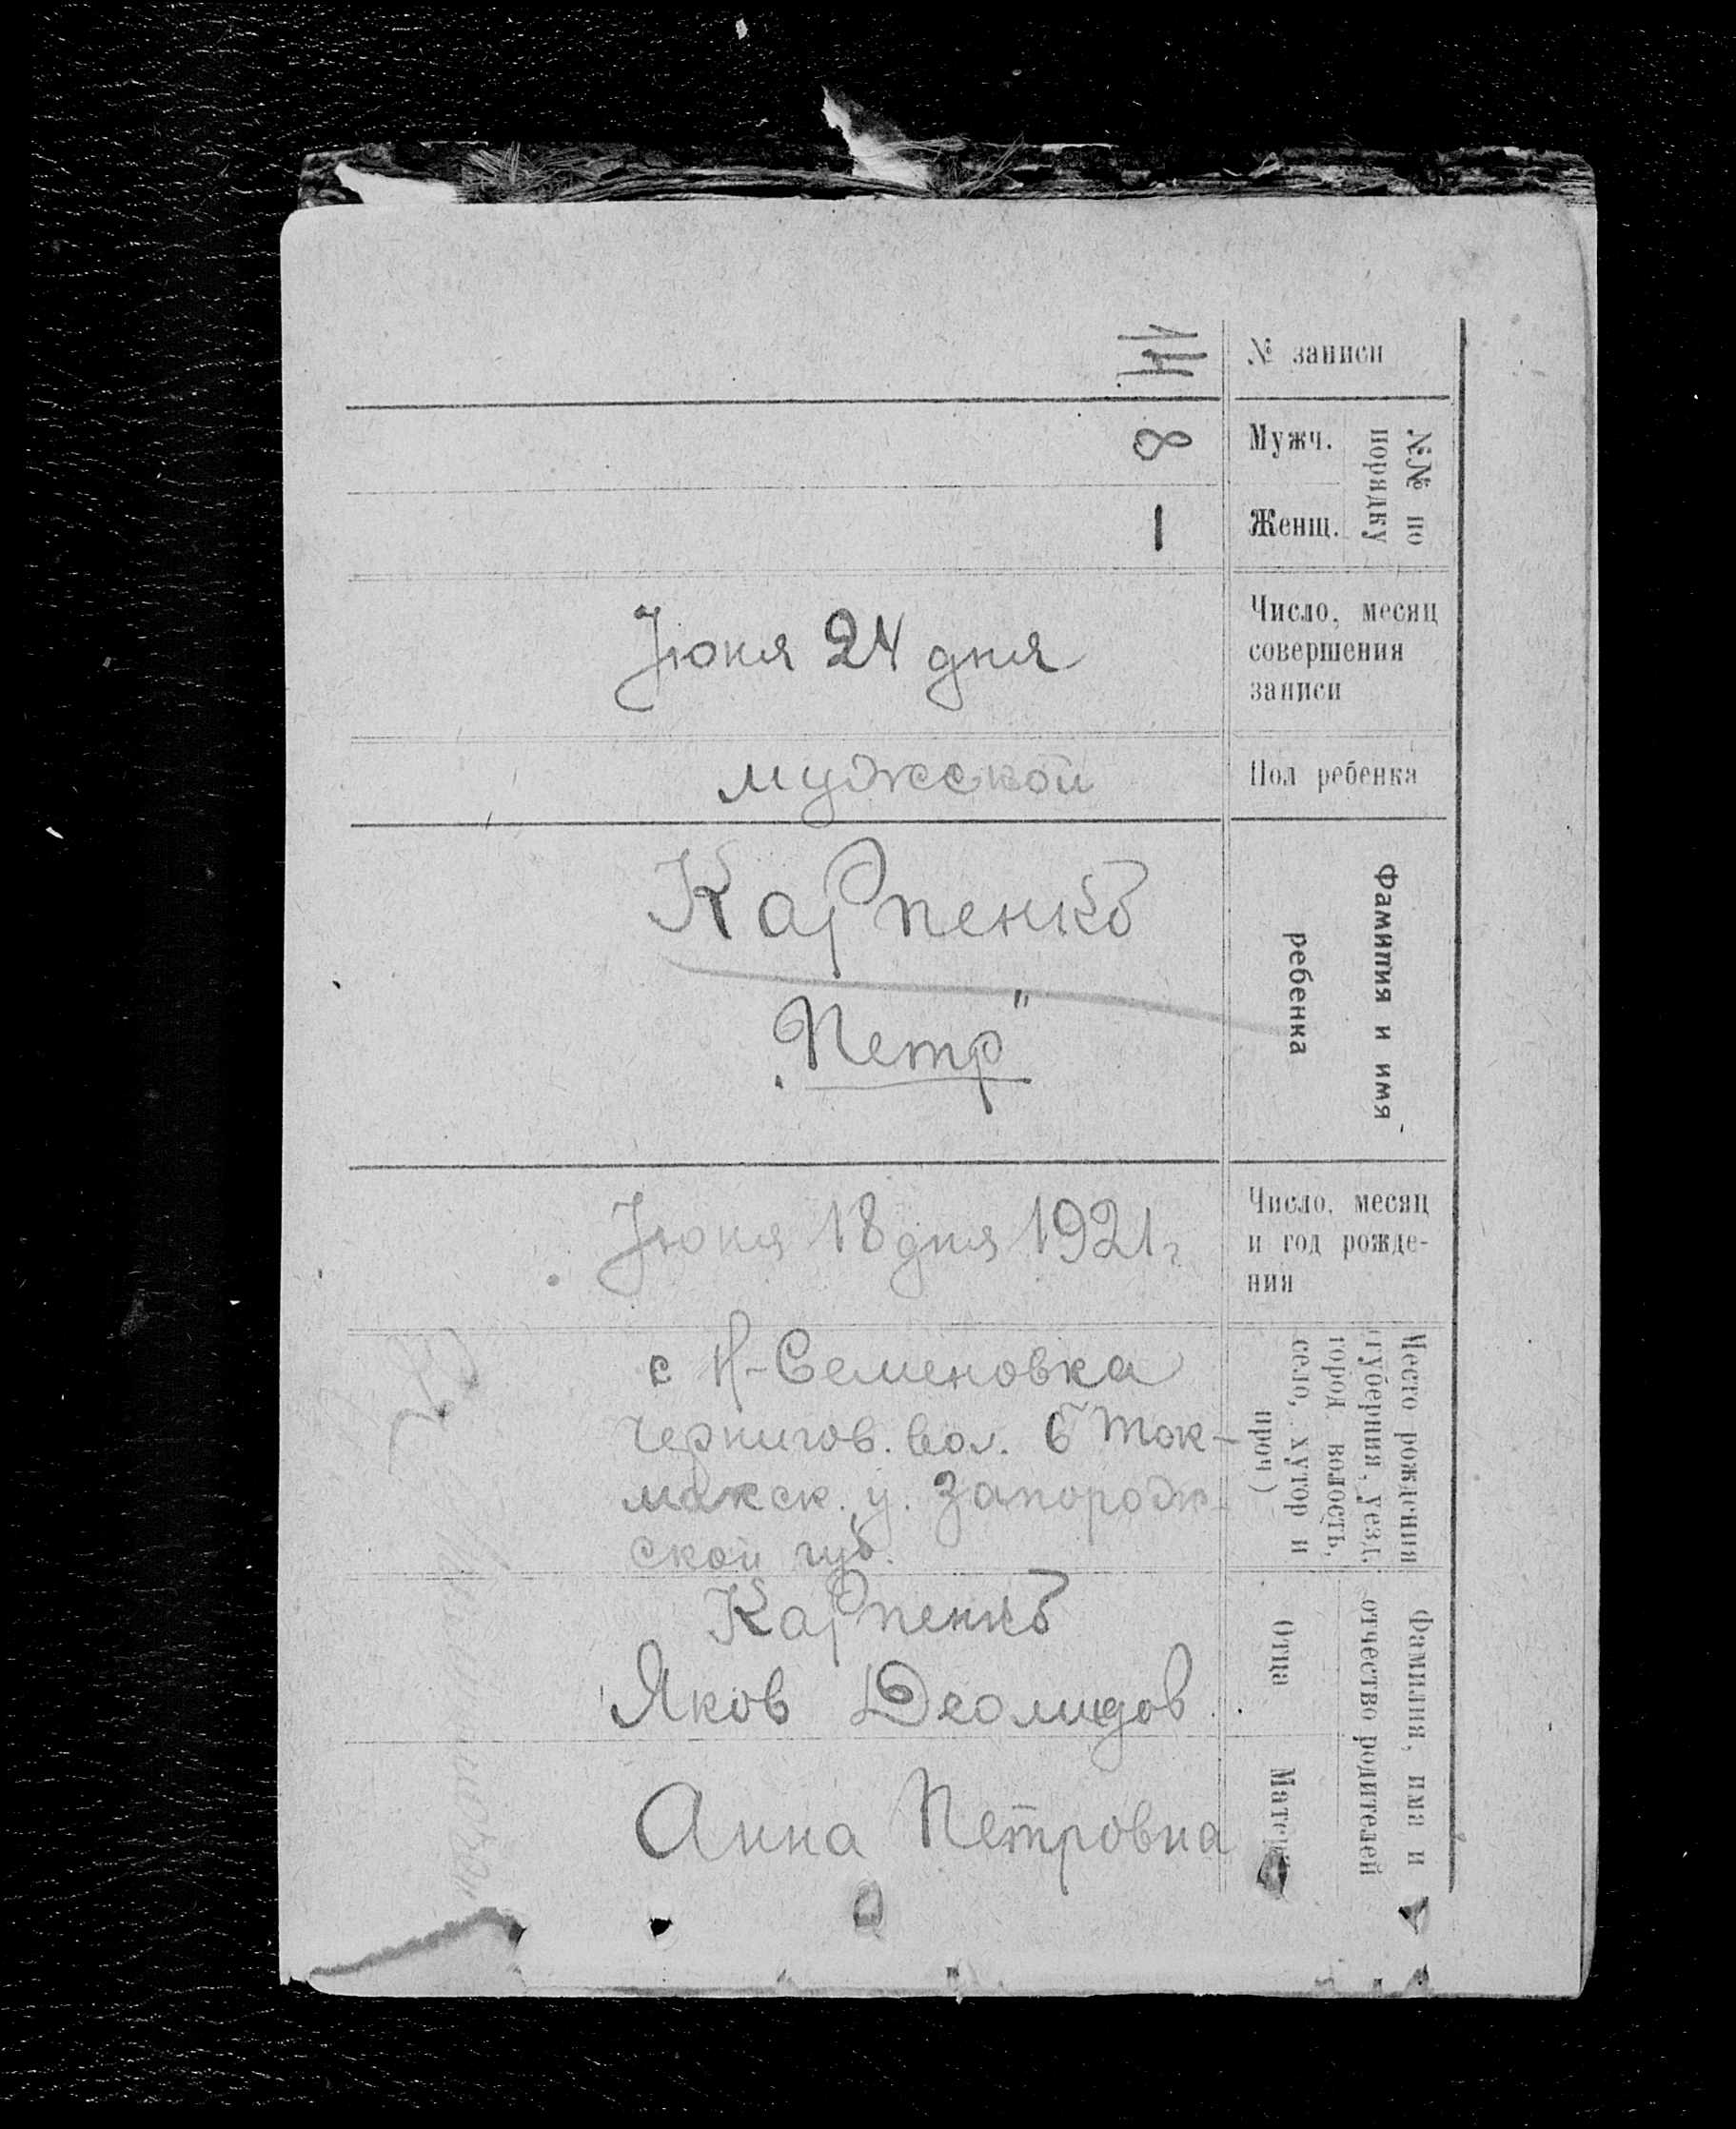 № записи
№№ по
порядку
Мужч.
8
Женщ.
1
Число, месяц
совершения
записи
Июня 24 дня
Пол ребенка
мужской
Фамилия и имя
ребенка
Карпенко
„Петр"
Число, месяц
и год рожде-
ния
Июня 18 дня 1921 г
Место рождения
(губерния, уезд,
город. волость,
село, хутор и
проч)
с Н-Семеновка
Чернигов. вол. Б Ток-
макск. у. Запорож-
ской губ.
Фамилия, имя и
отчество родителей
Отца
Карпенко
Яков Деомидов
Матери
Анна Петровна